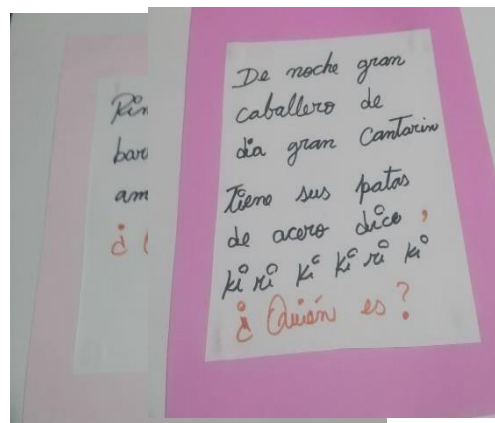 De noche gran
caballero de
dia gran Cantarin
Tiene sus patas
de acero dice,
ki ri ki ki ri ki
¿Quién es?